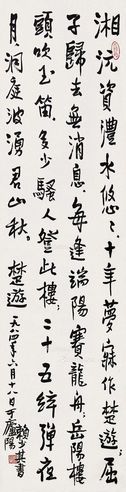 湘沅資澧水悠悠十年夢寐作楚遊屈
子歸去無消息每逢端陽賽龍舟岳陽樓
頭吹玉笛多少騷人登此樓二十五絃彈夜
月洞庭波湧君山秋 楚遊
一九八四年六月十八日于岳陽
其書